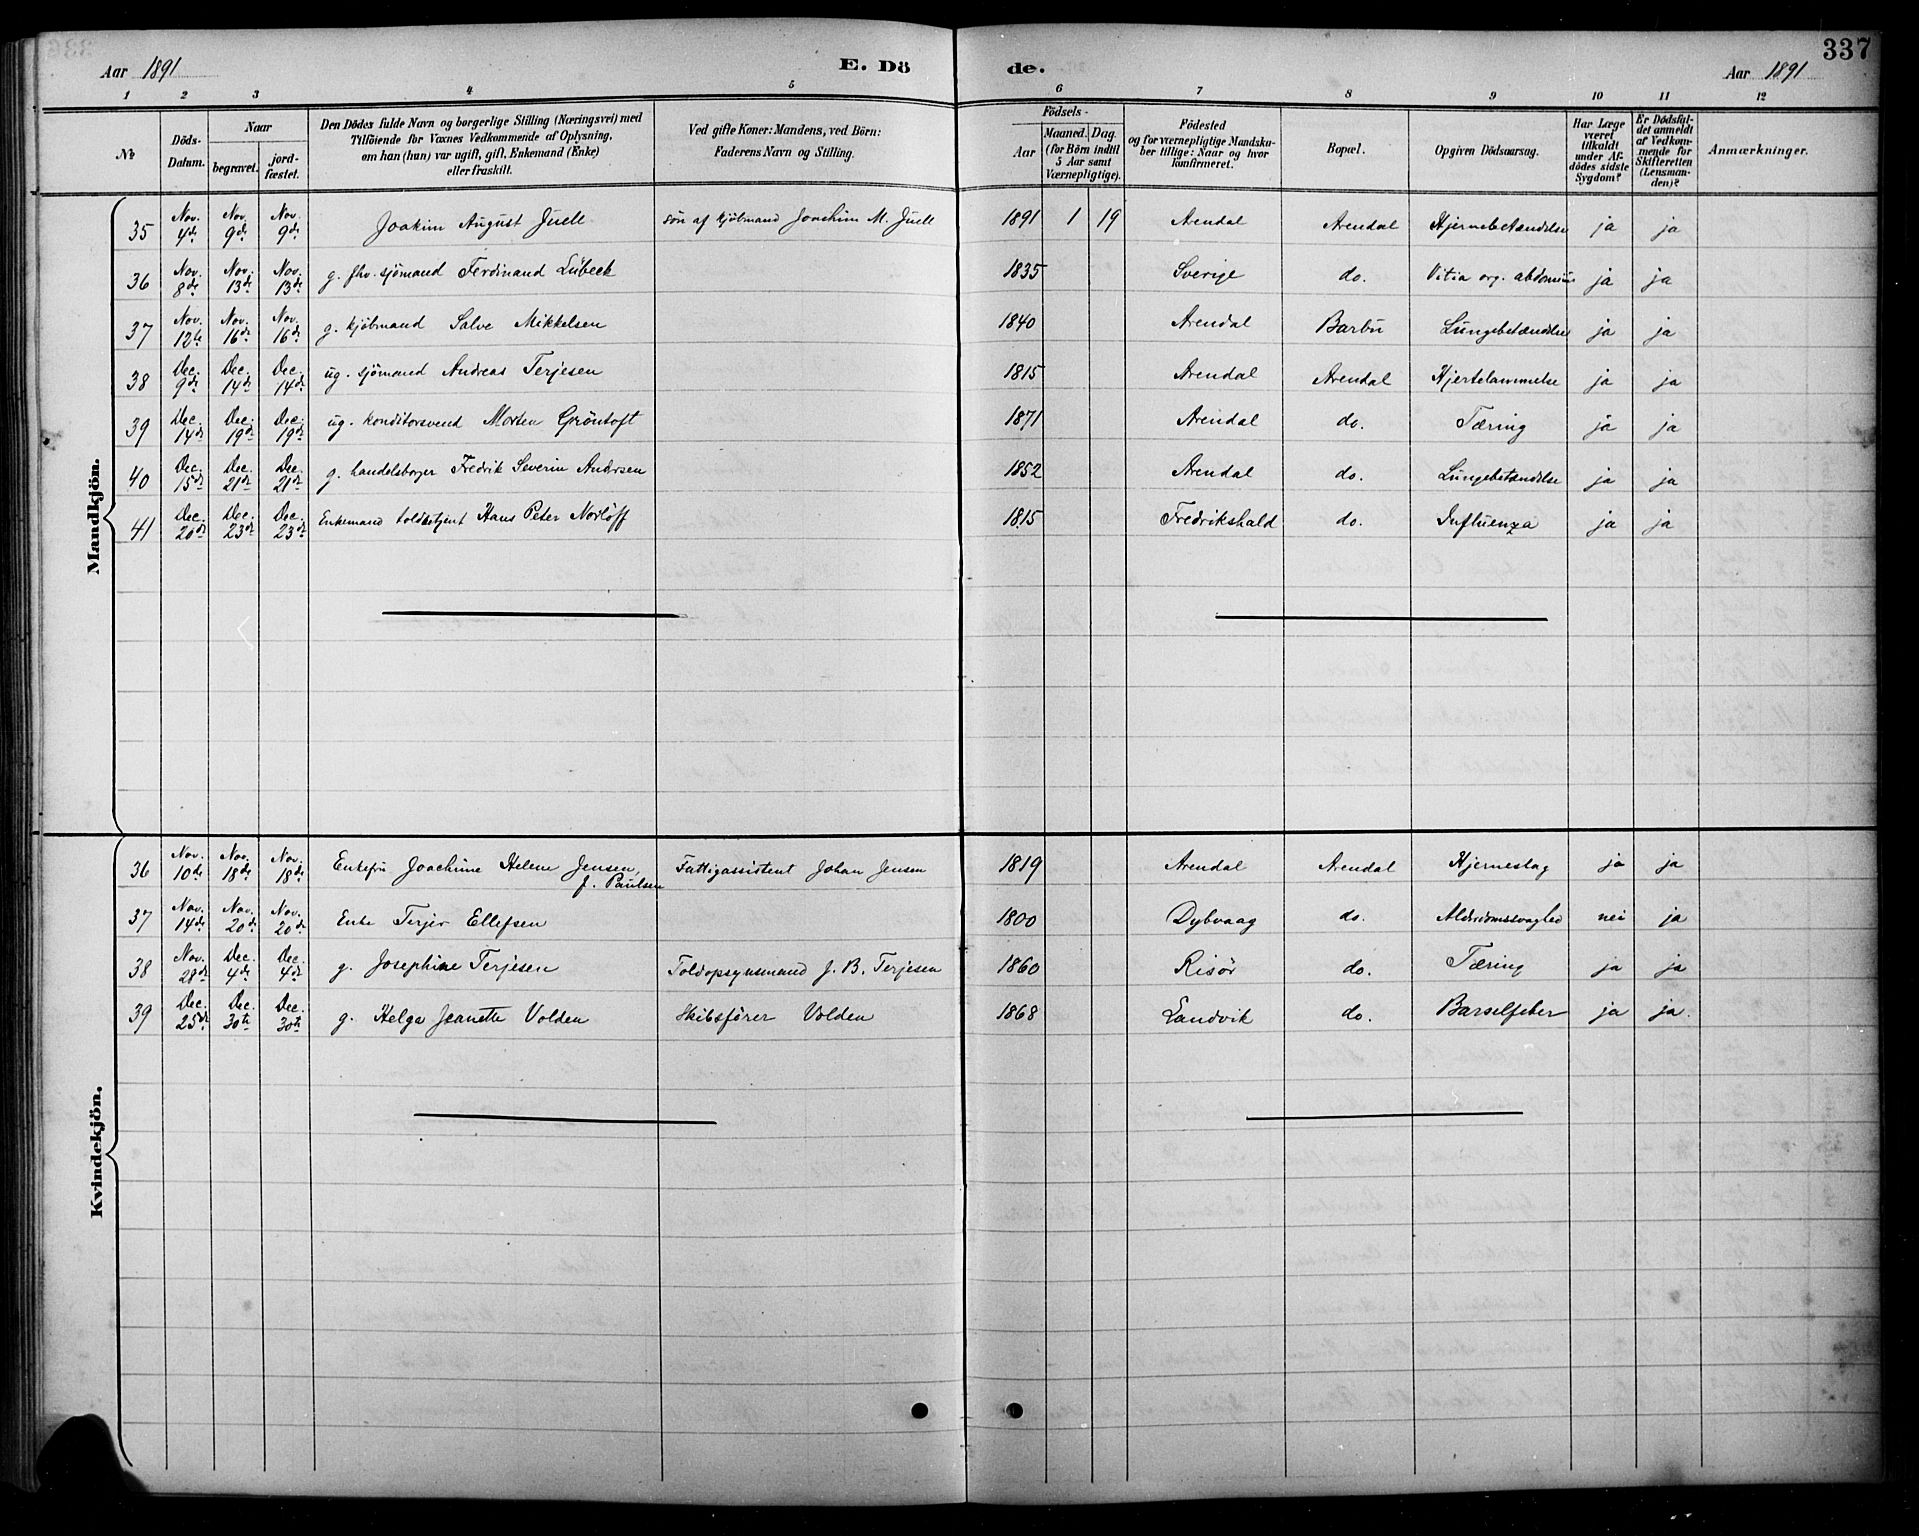 337
Aar 1891 E. Dö de. Aar 1891
1 2 3 4 5 6 7 8 9 10 11 12
№ Döds-Datum. Naar begravet. jordfæstet. Den Dödes fulde Navn og borgerlige Stilling (Næringsvei) med Tilföiende for Voxnes Vedkommende af Oplysning, om han (hun) var ugift, gift, Enkemand (Enke) eller fraskilt. Ved gifte Koner: Mandens, ved Börn: Faderens Navn og Stilling. Födsels- Aar Maaned. Dag. (for Börn indtil 5 Aar samt Værnepligtige). Födested og for værnepligtige Mandskaber tillige: Naar og hvor konfirmeret. Bopæl. Opgiven Dödsaarsag. Har Læge været tilkaldt under Afdödes sidste Sygdom? Er Dödsfaldet anmeldt af Vedkommende for Skifteretten (Lensmanden)? Anmærkninger.
Mandkjön.
35 Nov. 4de Nov. 9de Nov. 9de Joakim August Juell søn af kjøbmand Joachim M. Juell 1891 1 19 Arendal Arendal Hjernebetændelse ja ja
36 Nov. 8de Nov. 13de Nov. 13de g. fhv. sjømand Ferdinand Lübeck 1835 Sverige do. Vitia org. abdominis ja ja
37 Nov. 12te Nov. 16de Nov. 16de g. kjøbmand Salve Mikkelsen 1840 Arendal Barbu Lungebetændelse ja ja
38 Dec. 9de Dec. 14de Dec. 14de ug. sjømand Andreas Terjesen 1815 Arendal Arendal Hjertelammelse ja ja
39 Dec. 14de Dec. 19de Dec. 19de ug. konditorsvend Morten Grøntoft 1871 Arendal do. Tæring ja ja
40 Dec. 15de Dec. 21de Dec. 21de g. handelsborger Fredrik Severin Andersen 1852 Arendal do. Lungebetændelse ja ja
41 Dec. 20de Dec. 23de Dec. 23de Enkemand toldbetjent Hans Peter Norløff 1815 Fredrikshald do. Influenza ja ja
Kvindekjön.
36 Nov. 10de Nov. 18de Nov. 18de Enkefru Joachime Helene Jensen, f. Paulsen Fattigassistent Johan Jensen 1819 Arendal Arendal Hjerneslag ja ja
37 Nov. 14de Nov. 20de Nov. 20de Enke Terjer Ellefsen 1800 Dybvaag do. Alderdomssvaghed nei ja
38 Nov. 28de Dec. 4de Dec. 4de g. Josephine Terjesen Toldopsynsmand J. B. Terjesen 1860 Risør do. Tæring ja ja
39 Dec. 25de Dec. 30te Dec. 30te g. Helga Jeanette Volden Skibsfører Volden 1868 Landvik do. Barselfeber ja ja.